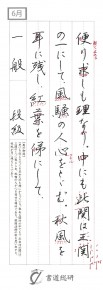 6月
便り求しも理なり。中にも此関は三関
の一にして、風騒の人心をとどむ。秋風を
耳に残し、紅葉を俤にして、
一般 段級
書道総研